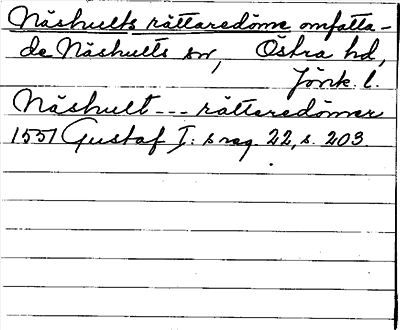 Näshults rättaredöme omfatta-
de Näshults sn, Östra hd,
Jönk. l.
Näshult --- rättaredömer
1551 Gustaf I:s reg. 22, s. 203.